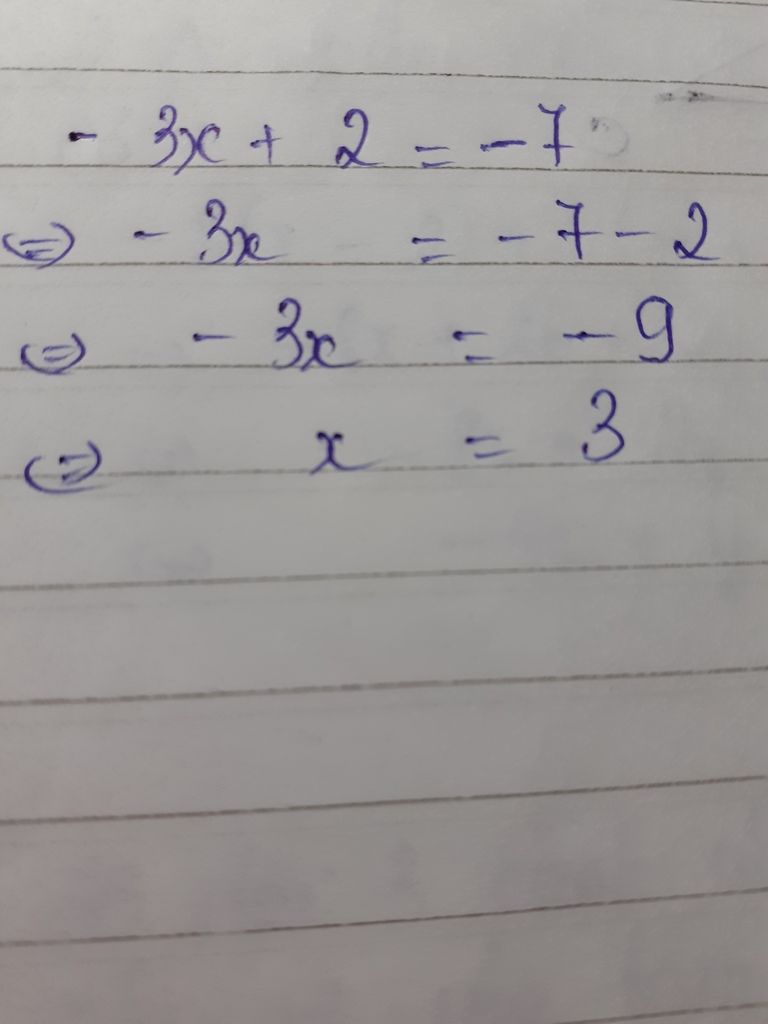 - 3x + 2 = -7
⇔ - 3x = -7 - 2
⇔ - 3x = -9
⇔ x = 3